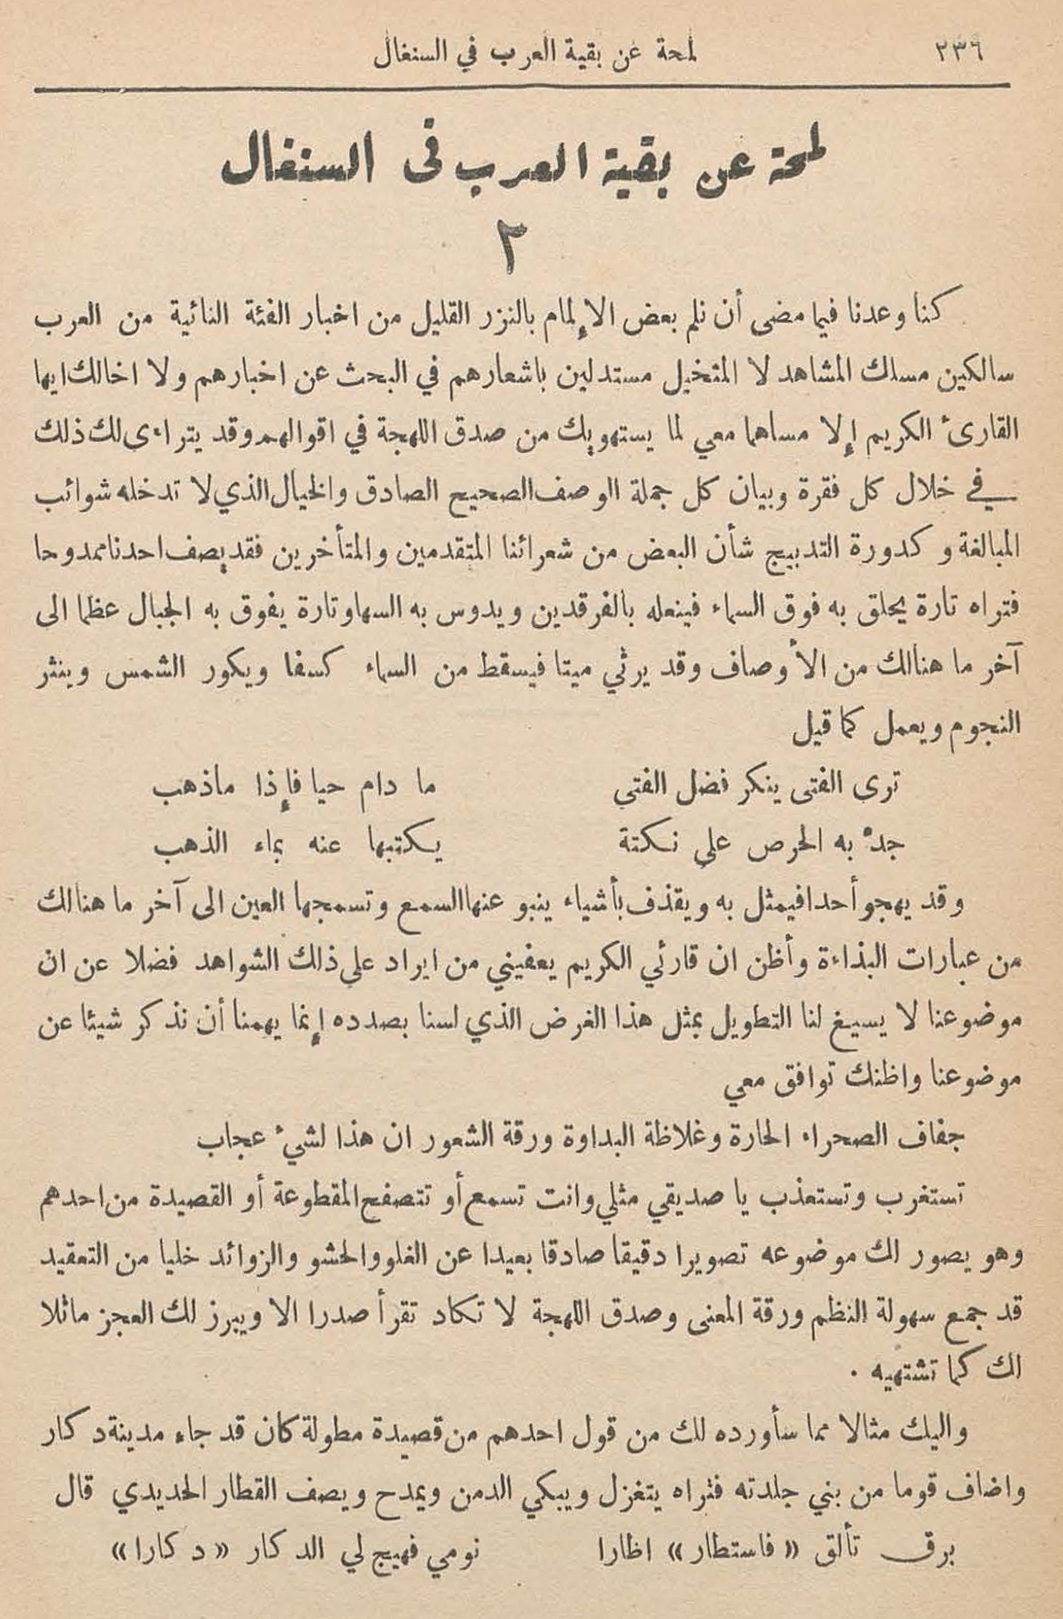 ٢٣٦ لمحة عن بقية العرب في السنغال
لمحة عن بقية العرب في السنغال
٢
كنا وعدنا فيما مضى أن نلم بعض الإلمام بالنزر القليل من اخبار الفئة النائية من العرب
سالكين مسلك المشاهد لا المتخيل مستدلين باشعارهم في البحث عن اخبارهم ولا اخالك ايها
القارئ الكريم إلا مساهما معي لما يستهويك من صدق اللهجة في اقوالهم وقد يتراءى لك ذلك
في خلال كل فقرة وبيان كل جملة الوصف الصحيح الصادق والخيال الذي لا تدخله شوائب
المبالغة وكدورة التدبيج شأن البعض من شعرائنا المتقدمين والمتأخرين فقد يصف احدنا ممدوحا
فتراه تارة يحلق به فوق السماء فينعله بالفرقدين ويدوس به السها وتارة يفوق به الجبال عظما الى
آخر ما هنالك من الأوصاف وقد يرثي ميتا فيسقط من السماء كسفا ويكور الشمس وينثر
النجوم ويعمل كما قيل
ترى الفتى ينكر فضل الفتى ما دام حيا فإذا ماذهب
جدّ به الحرص على نكتة يكتبها عنه بماء الذهب
وقد يهجو أحدا فيمثل به ويقذف بأشياء ينبو عنها السمع وتسمجها العين الى آخر ما هنالك
من عبارات البذاءة وأظن ان قارئي الكريم يعفيني من ايراد على ذلك الشواهد فضلا عن ان
موضوعنا لا يسيغ لنا التطويل بمثل هذا الغرض الذي لسنا بصدده إنما يهمنا أن نذكر شيئا عن
موضوعنا واظنك توافق معي
جفاف الصحراء الحارة وغلاظة البداوة ورقة الشعور ان هذا لشيء عجاب
تستغرب وتستعذب يا صديقي مثلي وانت تسمع أو تتصفح المقطوعة أو القصيدة من احدهم
وهو يصور لك موضوعه تصويرا دقيقا صادقا بعيدا عن الغلو والحشو والزوائد خليا من التعقيد
قد جمع سهولة النظم ورقة المعنى وصدق اللهجة لا تكاد تقرأ صدرا الا ويبرز لك العجز ماثلا
لك كما تشتهيه .
واليك مثالا مما سأورده لك من قول احدهم من قصيدة مطولة كان قد جاء مدينة دكار
واضاف قوما من بني جلدته فتراه يتغزل ويبكي الدمن ويمدح ويصف القطار الحديدي قال
برق تألق «فاستطار» اظارا نومي فهيج لي الدكار «دكارا»